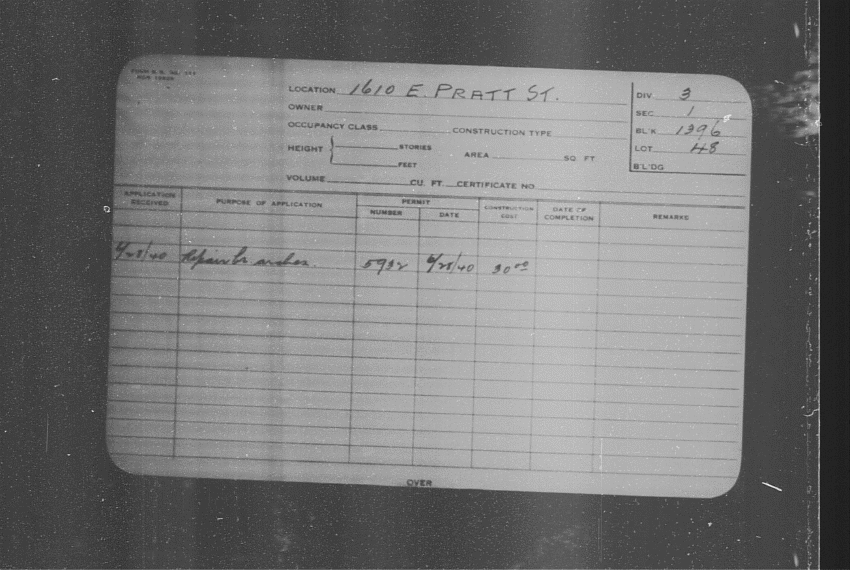 LOCATION 1610 E. PRATT ST.
OWNER
OCCUPANCY CLASS CONSTRUCTION TYPE
HEIGHT STORIES
FEET
AREA SQ. FT.
VOLUME CU. FT. CERTIFICATE NO.
DIV. 3
SEC. 1
BL'K 1396
LOT 48
B'L'DG
APPLICATION RECEIVED PURPOSE OF APPLICATION PERMIT NUMBER DATE CONSTRUCTION COST DATE OF COMPLETION REMARKS
6/28/40 Repair br arches. 5932 6/28/40 30 00
OVER